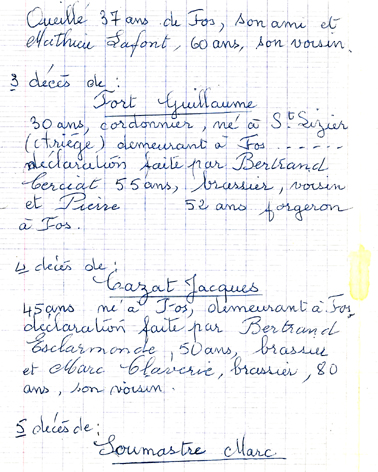 Queillé 37 ans de Fos, son ami et
Mathieu Lafont, 60 ans, son voisin.
3 décès de :
Fort Guillaume
30 ans, cordonnier, né à St Lizier
(Ariège) demeurant à Fos ------
déclaration faite par Bertrand
Cerciat 55 ans, brassier, voisin
et Pierre 52 ans forgeron
à Fos.
4 décès de :
Cazat Jacques
45 ans né à Fos, demeurant à Fos,
déclaration faite par Bertrand
Esclarmonde, 50 ans, brassier
et Marc Claverie, brassier, 80
ans, son voisin.
5 décès de :
Soumastre Marc